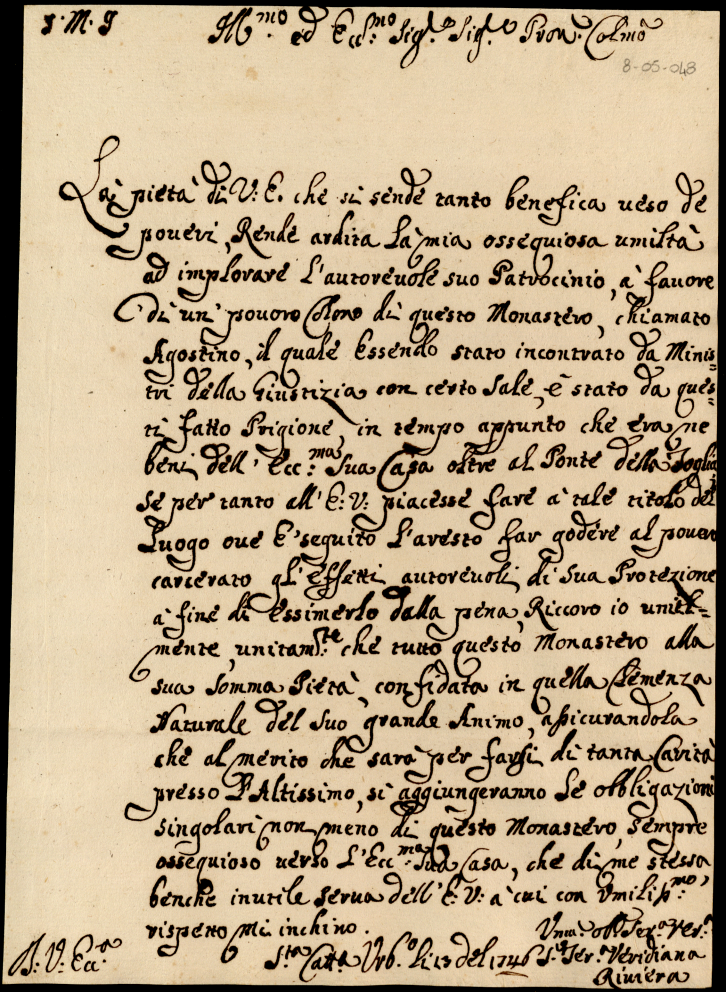 J. M. J
Ill.mo ed Ecc.mo Sig.e Sig.e Pron. Colmo
8-05-048
La pietà di V: E. che si rende tanto benefica ueso de
poueri, Rende ardita La mia ossequiosa umiltà
ad implorare L'autoreuole suo Patrocinio, à fauore
di un' pouoro Colono di questo Monastero, chiamato
Agostino, il quale Essendo stato incontrato da Minis=
tri della Giustizia con certo Sale, è stato da ques=
ti fatto Prigione, in tempo appunto che era ne
beni dell' Ecc:ma Sua Casa oltre al Ponte della Foglia
se per tanto all' E: V: piacesse fare à tale titolo del
Luogo oue E' seguito L'aresto far godere al pouero
carcerato gl'Effetti autoreuoli di Sua Protezione
à fine di Essimerlo dalla pena, Riccoro io umil=
mente, unitam.te che tutto questo Monastero alla
sua Somma Pietà, confidata in quella Clemenza
Naturale del Suo grande Animo, assicurandola
che al merito che sarà per farsi di tanta Carità
presso L'Altissimo, si aggiungeranno Le obbligazioni
singolari non meno di questo Monastero, sempre
ossequioso uerso L'Ecc:ma Sua Casa, che di me stessa,
benche inutile serua dell' E: V: à cui con Vmiliss.mo
rispetto mi inchino.
Vma. obb. Ser.a Ver.a
B: V: Ecc.a
S.ta Catt.a Vrb.o li 13 del 1746 S.r Ser.a Veridiana
Riuiera